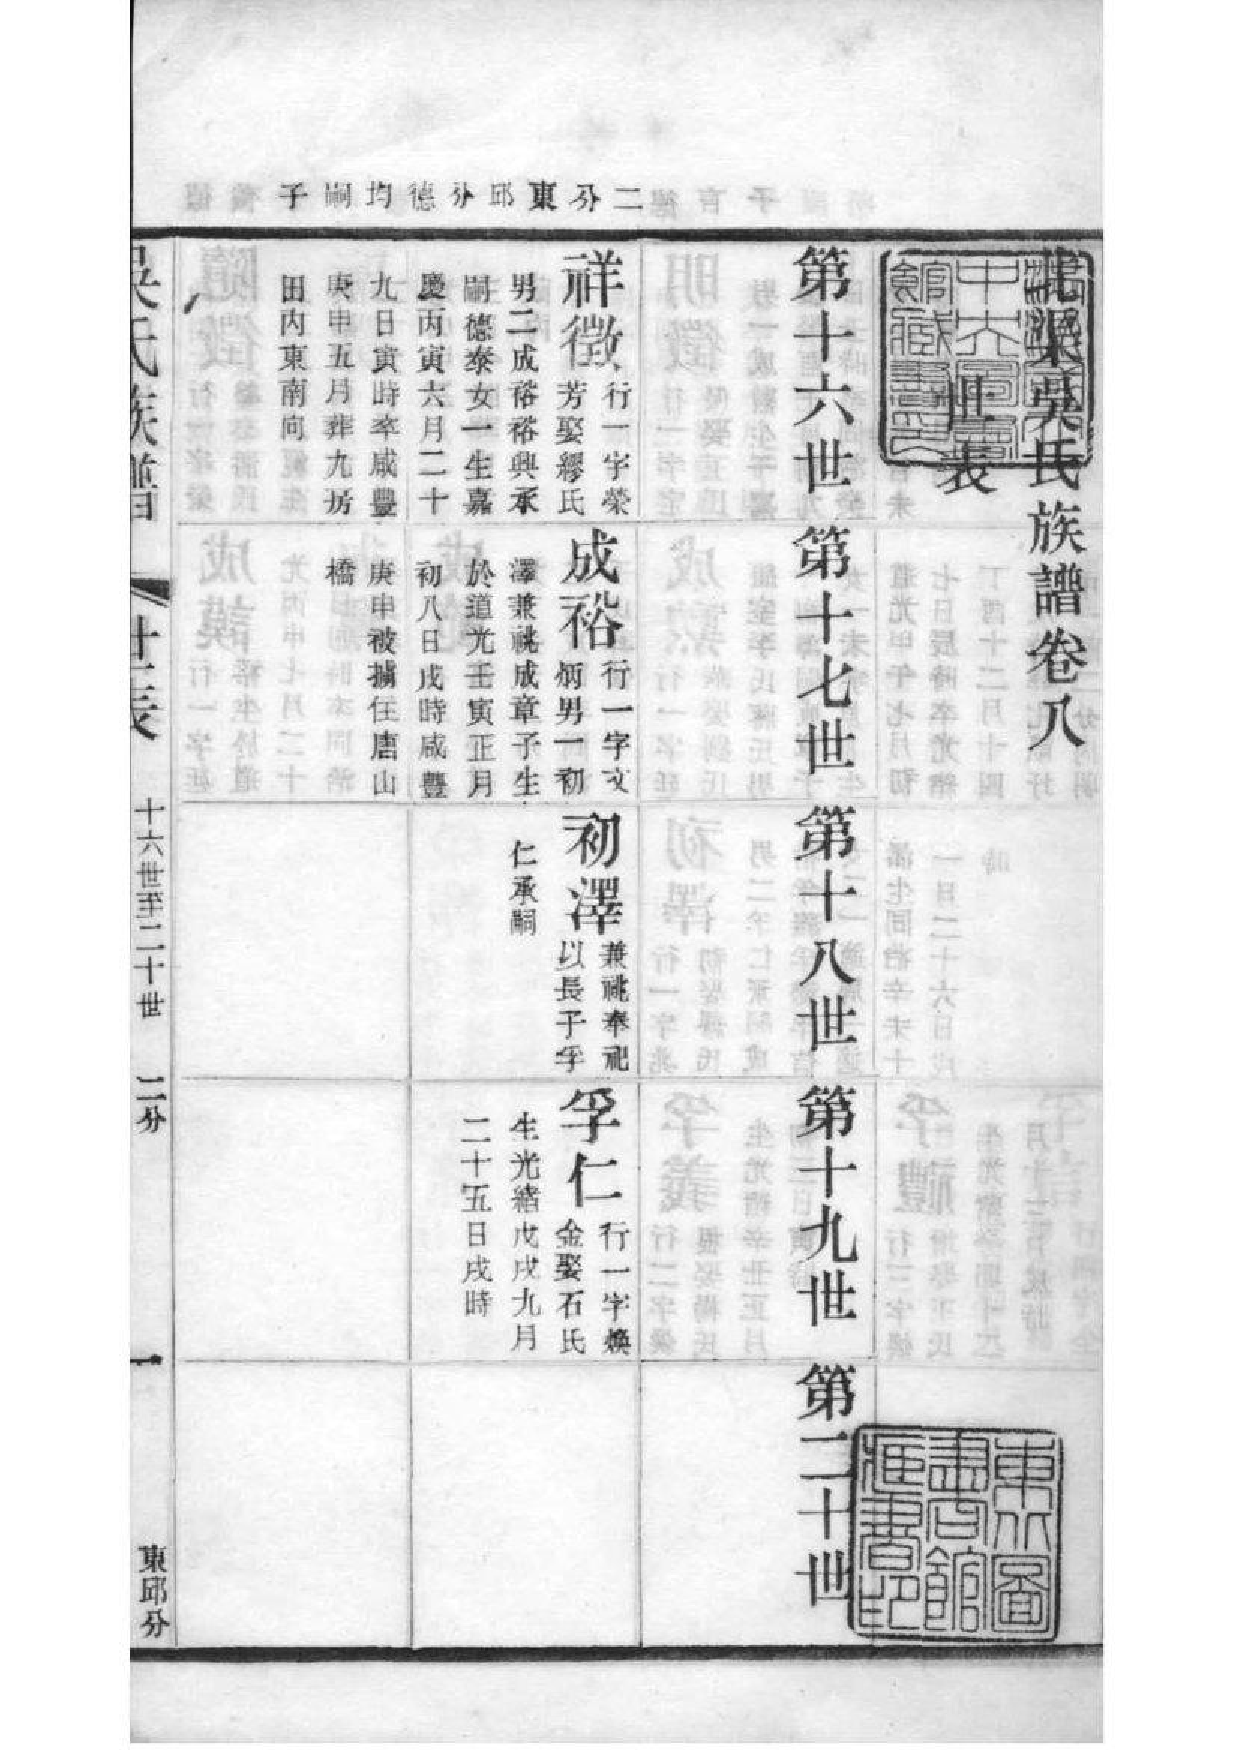 二分東邱分德均嗣子
北渠吳氏族譜卷八
世表
第十六世
祥徵
行一字榮
芳娶繆氏
男二成裕裕興承
嗣德泰女一生嘉
慶丙寅六月二十
九日寅時卒咸豐
庚申五月葬九房
田內東南向
第十七世
成裕
行一字文
炳男一初
澤兼祧成章子生
於道光壬寅正月
初八日戌時咸豐
庚申被擄在唐山
橋
第十八世
初澤
兼祧奉祀
以長子孚
仁承嗣
第十九世
孚仁
行一字煥
金娶石氏
生光緒戊戌九月
二十五日戌時
第二十世
吳氏族譜
世表
十六世至二十世
二分
一
東邱分